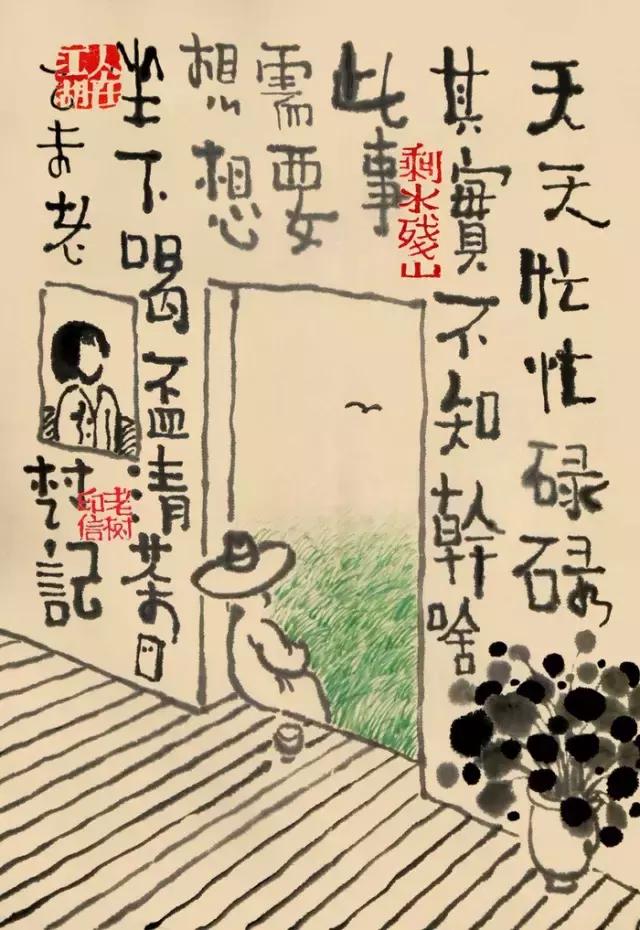 天天忙忙碌碌
其實不知幹啥
剩水殘山
此事
需要
想想
坐下喝盃清茶
人在江湖
乙未老
記
老树印信